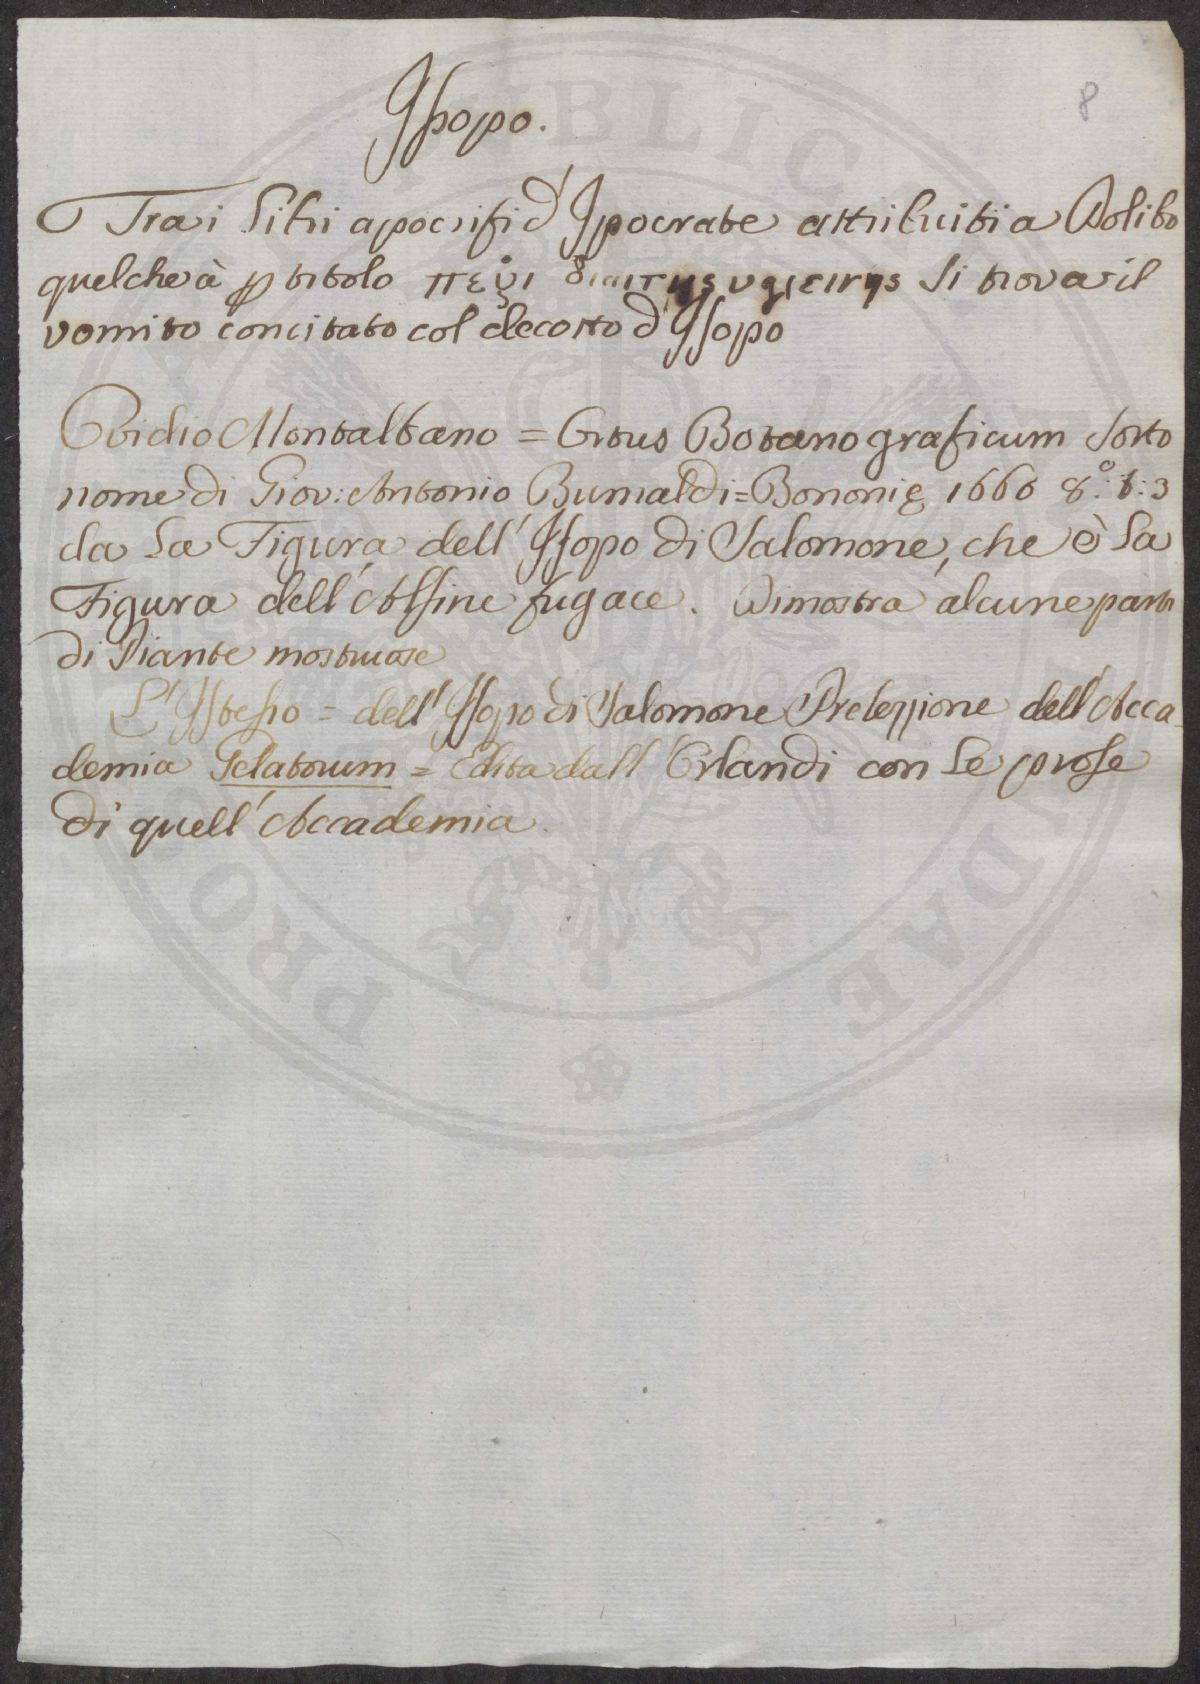 8
Issopo.
Tra i Libri apocrifi d'Ipocrate attribuiti a Polibo
quel che à ꝑ titolo περι διαιτης υγιεινης si trova il
vomito concitato col decotto d'Issopo
Ovidio Montalbano = Ortus Botanograficum sotto
nome di Giov: Antonio Bumaldi = Bononię 1660 8.º t: 3
da la Figura dell'Issopo di Salomone, che è la
Figura dell'Alsine fugace. Dimostra alcune parti
di Piante mostruose
L'Istesso = dell'Issopo di Salomone Prelezzione dell'Acca-
demia Gelatorum = Edita dall'Orlandi con le prose
di quell'Accademia.
PROC PUBLICA DAE